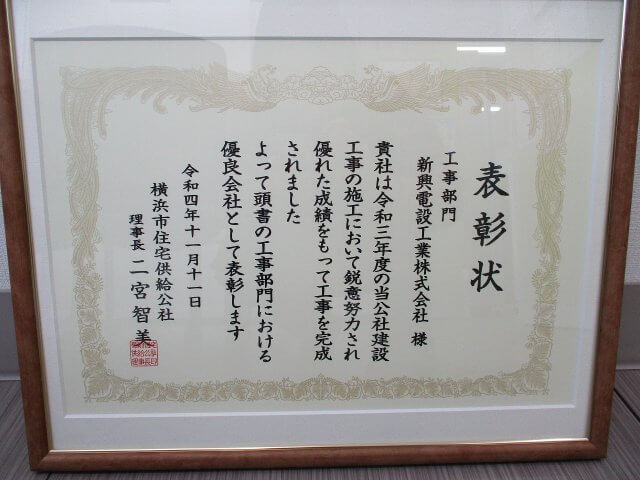 表彰状
工事部門
新興電設工業株式会社 様
貴社は令和三年度の当公社建設
工事の施工において鋭意努力され
優れた成績をもって工事を完成
されました
よって頭書の工事部門における
優良会社として表彰します
令和四年十一月十一日
横浜市住宅供給公社
理事長 二宮智美